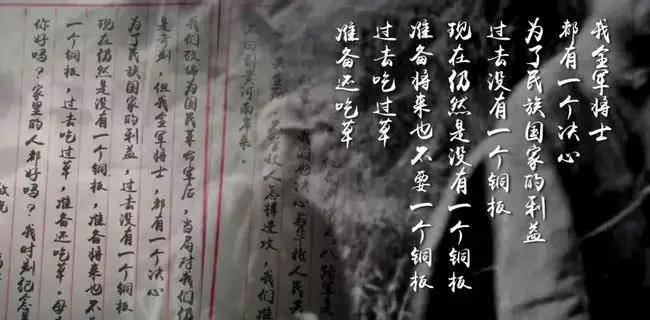 我全军将士
都有一个决心
为了民族国家的利益
过去没有一个铜板
现在仍然是没有一个铜板
准备将来也不要一个铜板
过去吃过草
准备还吃草
八路军是
我们也决心与华北人民共
敌人怎样进攻，我们准
不回到黄河南岸来。
我们改编为国民革命军后，当局对我们仍
是苛刻，但我全军将士，都有一个决心
为了民族国家的利益，过去没有一个铜板
现在仍然是没有一个铜板，准备将来也不
一个铜板，过去吃过草，准备还吃草。母
你好吗？家里的人都好吗？我时刻纪念
敬祝